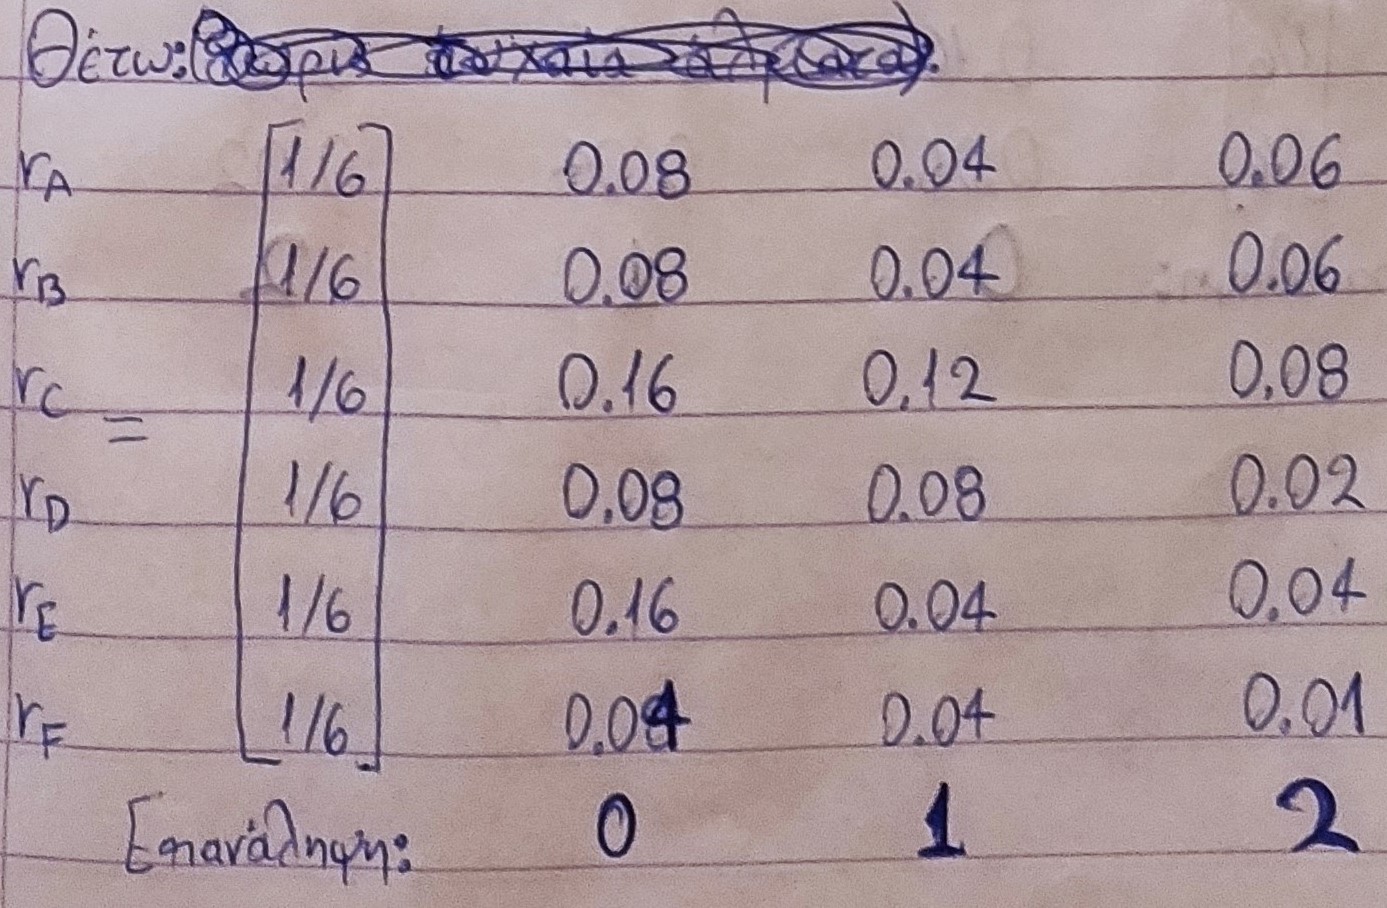 Θέτω:
rA 1/6 0.08 0.04 0.06
rB 1/6 0.08 0.04 0.06
rC 1/6 0.16 0.12 0.08
=
rD 1/6 0.08 0.08 0.02
rE 1/6 0.16 0.04 0.04
rF 1/6 0.04 0.04 0.01
Επανάληψη: 0 1 2